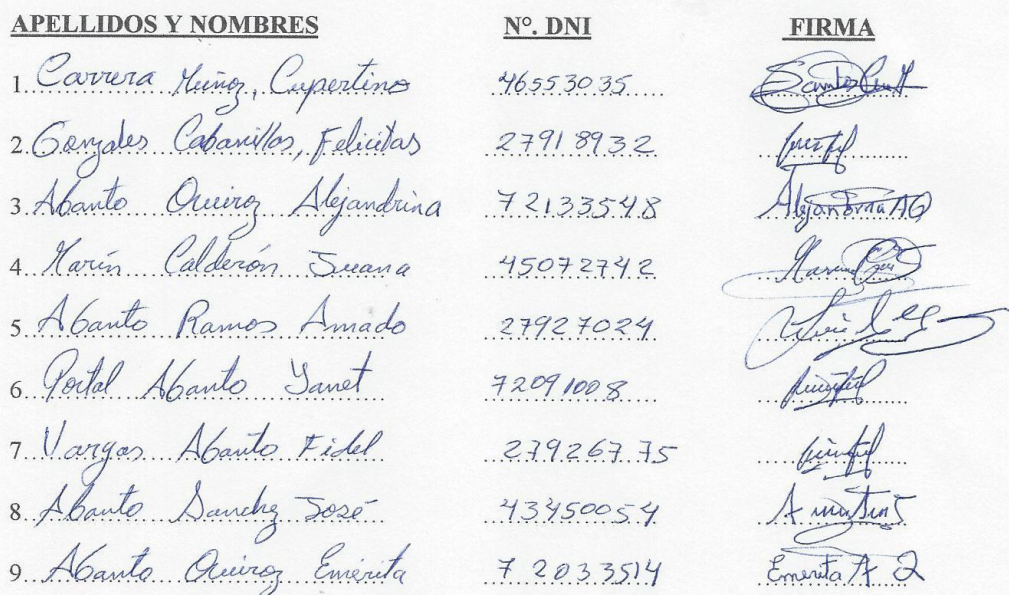 APELLIDOS Y NOMBRES N°. DNI FIRMA
1. Carrera Muñoz, Cupertino 46553035
2. Gonzales Cabanillas, Felicitas 27918932
3. Abanto Quiroz Alejandrina 72133548 Alejandrina AQ
4. Marín Calderón Juana 45072742
5. Abanto Ramos Amado 27927024
6. Portal Abanto Yanet 72091008
7. Vargas Abanto Fidel 27926775
8. Abanto Sanchz José 43450054
9. Abanto Quiroz Emérita 72033514 Emerita A Q